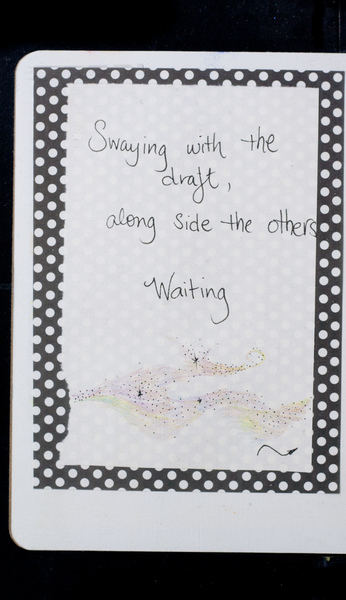 Swaying with the
draft,
along side the others
Waiting